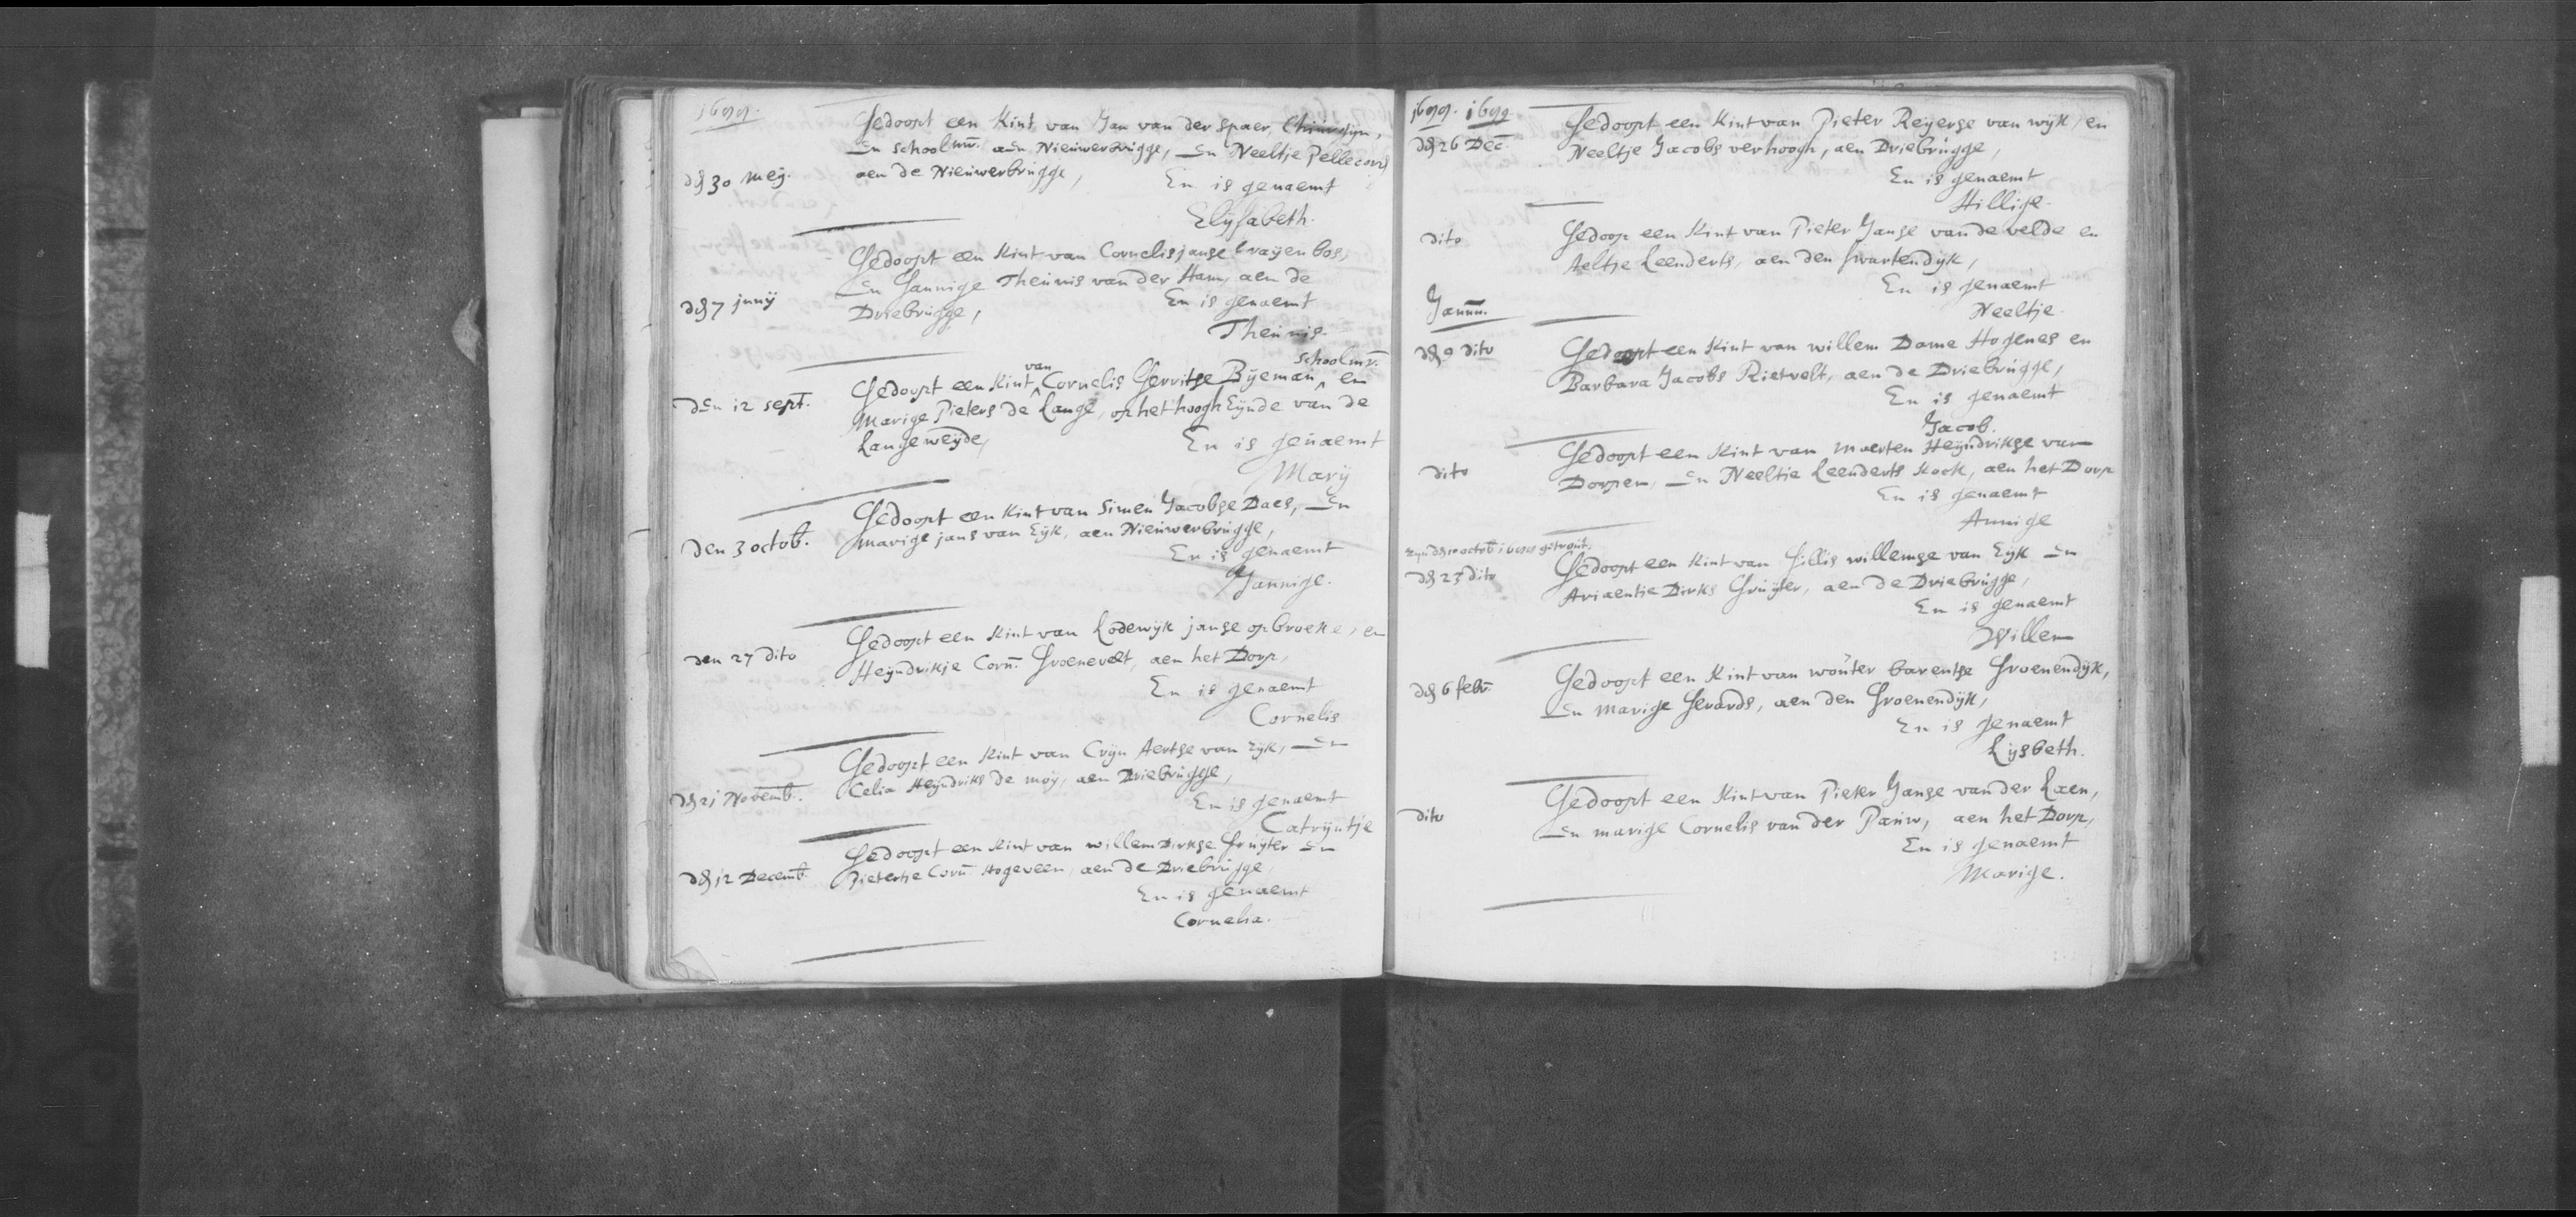 1699.
Gedoopt een Kint van Jan van der spaer, Chirurgijn,
den 30 meij. En schoolmr. aen Nieuwerbrugge, En Neeltje Pellecoorn
aen de Nieuwerbrugge, En is genaemt
Elijsabeth.
Gedoopt een Kint van Cornelis janse Craijenbos,
En Jannige Theunis van der Ham, aen de
den 7 junij Driebrugge, En is genaemt
Theunis.
schoolmr.
van
den 12 sept. Gedoopt een Kint Cornelis Gerritse Bijeman, en
Marige Pieters de Lange, op het hoogh Eijnde van de
Langeweijde, En is genaemt
Marij
Gedoopt een Kint van Simen Jacobse Daes, En
den 3 octob. Marige jans van Eijk, aen Nieuwerbrugge,
En is genaemt
Jannige.
Gedoopt een Kint van Lodewijk janse opbroeke, en
den 27 dito Heijndrikje Corn. Groenevelt, aen het Dorp,
En is genaemt
Cornelis
Gedoopt een Kint van Crijn Aertse van Eijk, En
den 21 Novemb. Celia Heijndriks de moij, aen Driebrugge,
En is genaemt
Catrijntje
Gedoopt een Kint van willem Dirkse Gruijter En
den 12 Decemb. Pietertie Corn. Hogeveen, aen de Driebrugge,
En is genaemt
Cornelia.
1699. 1699.
den 26 Dec. Gedoopt een Kint van Pieter Reijerse van wijk, en
Neeltje Jacobs verhoogh, aen Driebrugge,
En is genaemt
Hillige.
dito Gedoop een Kint van Pieter Janse van de velde en
Aeltje Leenderts, aen den swartendijk,
En is genaemt
Neeltje.
Januu.
den 9 dito Gedoopt een Kint van willem Dame Hogenes en
Barbara Jacobs Rietvelt, aen de Driebrugge,
En is genaemt
Jacob.
dito Gedoopt een Kint van Maerten Heijndrikse van
Dorpen, En Neeltie Leenderts Kock, aen het Dorp
En is genaemt
Annige
zijn den octob getrout.
den 23 dito Gedoopt een Kint van Gillis willemse van Eijk En
Ariaentie Dirks Gruijter, aen de Driebrugge,
En is genaemt
Willem
den 6 febr. Gedoopt een Kint van wouter barentse Groenendijk,
En marige Gerards, aen den Groenendijk,
En is genaemt
Lijsbeth.
dito Gedoopt een Kint van Pieter Janse van der Laen,
En marige Cornelis van der Pauw, aen het Dorp,
En is genaemt
Marige.